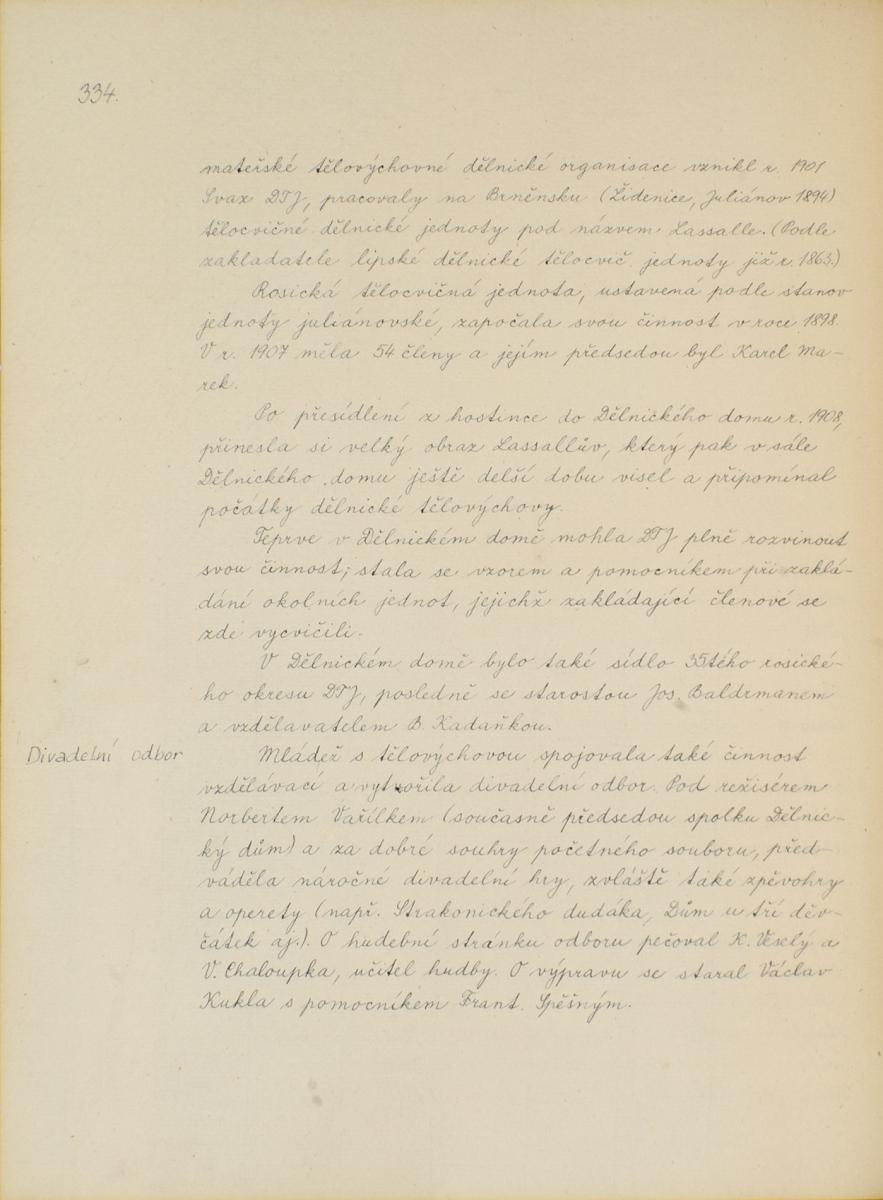 334.
mateřské tělovýchovné dělnické organisace vznikl r. 1901
Svaz DTJ, pracovaly na Brněnsku (Židenice, Juliánov 1894)
tělocvičné dělnické jednoty pod názvem Lassalle. (Podle
zakladatele lipské dělnické tělocvič. jednoty již r. 1863.)
Rosická tělocvičná jednota, ustavená podle stanov
jednoty juliánovské, započala svou činnost v roce 1898.
V r. 1907 měla 54 členy a jejím předsedou byl Karel Ma-
rek.
Po přesídlení z hostince do Dělnického domu r. 1908,
přinesla si velký obraz Lassallův, který pak v sále
Dělnického domu ještě delší dobu visel a připomínal
počátky dělnické tělovýchovy.
Teprve v Dělnickém domě mohla DTJ plně rozvinout
svou činnost; stala se vzorem a pomocníkem při zaklá-
dání okolních jednot, jejichž zakládající členové se
zde vycvičili.
V Dělnickém domě bylo také sídlo 35tého rosické-
ho okresu DTJ, posledně se starostou Jos. Baldrmanem
a vzdělavatelem B. Kadaňkou.
Divadelní odbor
Mládež s tělovýchovou spojovala také činnost
vzdělávací a vytvořila divadelní odbor. Pod režisérem
Norbertem Vařílkem (současně předsedou spolku Dělnic-
ký dům) a za dobré souhry početného souboru, před-
váděla náročné divadelní hry, zvláště také zpěvohry
a operety (např. Strakonického dudáka, Dům u tří děv-
čátek aj.). O hudební stránku odboru pečoval K. Veselý a
V. Chaloupka, učitel hudby. O výpravu se staral Václav
Kukla s pomocníkem Frant. Spěšným.